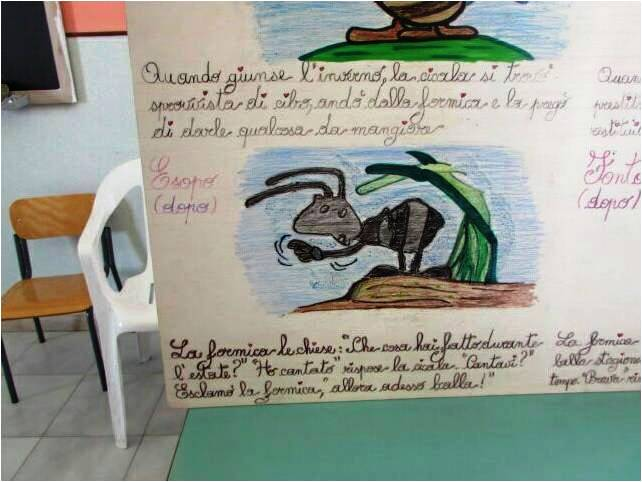 Quando giunse l'inverno, la cicala si trovò
sprovvista di cibo, andò dalla formica e la pregò
di darle qualcosa da mangiare
Esopo
(dopo)
La formica le chiese: "Che cosa hai fatto durante
l'estate?" "Ho cantato" rispose la cicala. "Cantavi?"
Esclamò la formica, "allora adesso balla!"
Quan
(dopo)
La formica
balla stagione
tempo. "Brava" ri